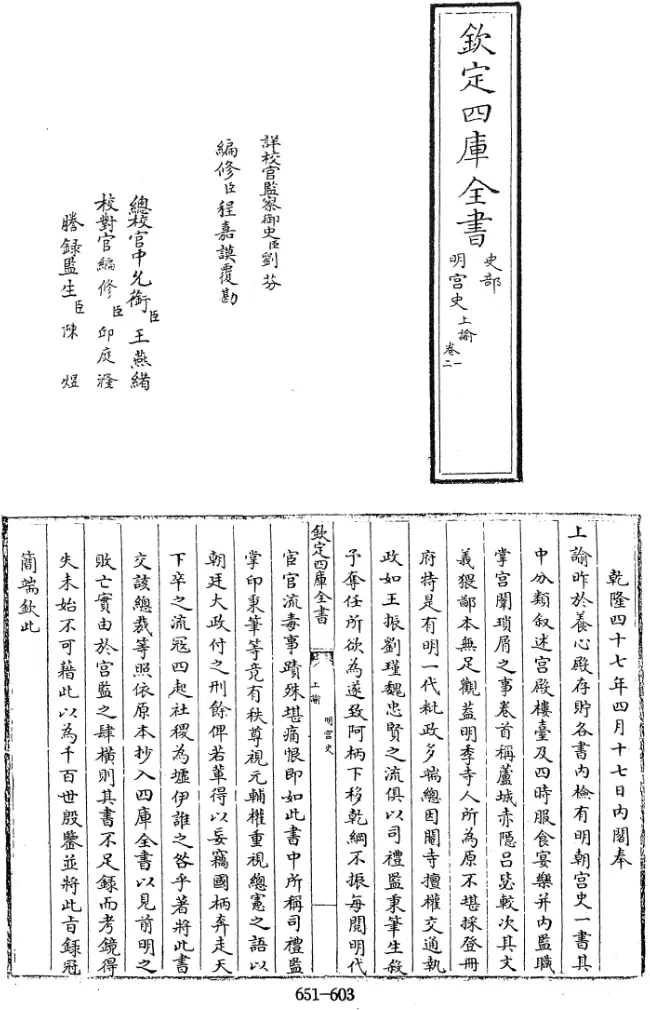 欽定四庫全書
史部
明宫史上諭
卷一
二
詳校官監察御史臣劉芬
編修臣程嘉謨覆勘
總校官中允銜臣王燕緒
校對官編修臣邱庭漋
謄錄監生臣陳煜
乾隆四十七年四月十七日内閣奉
上諭昨於養心殿存貯各書内檢有明朝宫史一書其
中分類叙述宫殿樓臺及四時服食宴樂并内監職
掌宫闈瑣屑之事卷首稱蘆城赤隱吕毖較次其文
義猥鄙本無足觀蓋明季寺人所為原不堪採登冊
府特是有明一代秕政多端總因閹寺擅權交通執
政如王振劉瑾魏忠賢之流俱以司禮監秉筆生殺
予奪任所欲為遂致阿柄下移乾綱不振每閱明代
欽定四庫全書
明宫史
上諭
宦官流毒事蹟殊堪痛恨即如此書中所稱司禮監
掌印秉筆等竟有秩尊視元輔權重視總憲之語以
朝廷大政付之刑餘俾若輩得以妄竊國柄奔走天
下卒之流冦四起社稷為墟伊誰之咎乎著將此書
交該總裁等照依原本抄入四庫全書以見前明之
敗亡實由於宫監之肆横則其書不足錄而考鏡得
失未始不可藉此以為千百世殷鑒並將此旨錄冠
簡端欽此
651-603